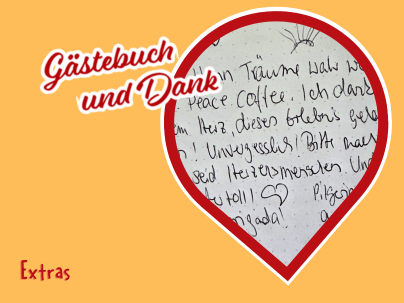 Gästebuch
und Dank
Träume wahr
Peace Coffee. Ich dank
Herz, dieses Erlebnis
! Unvergesslich! Bitte
seid Herzensmenschen. Und
toll! Pilgerin
Extras